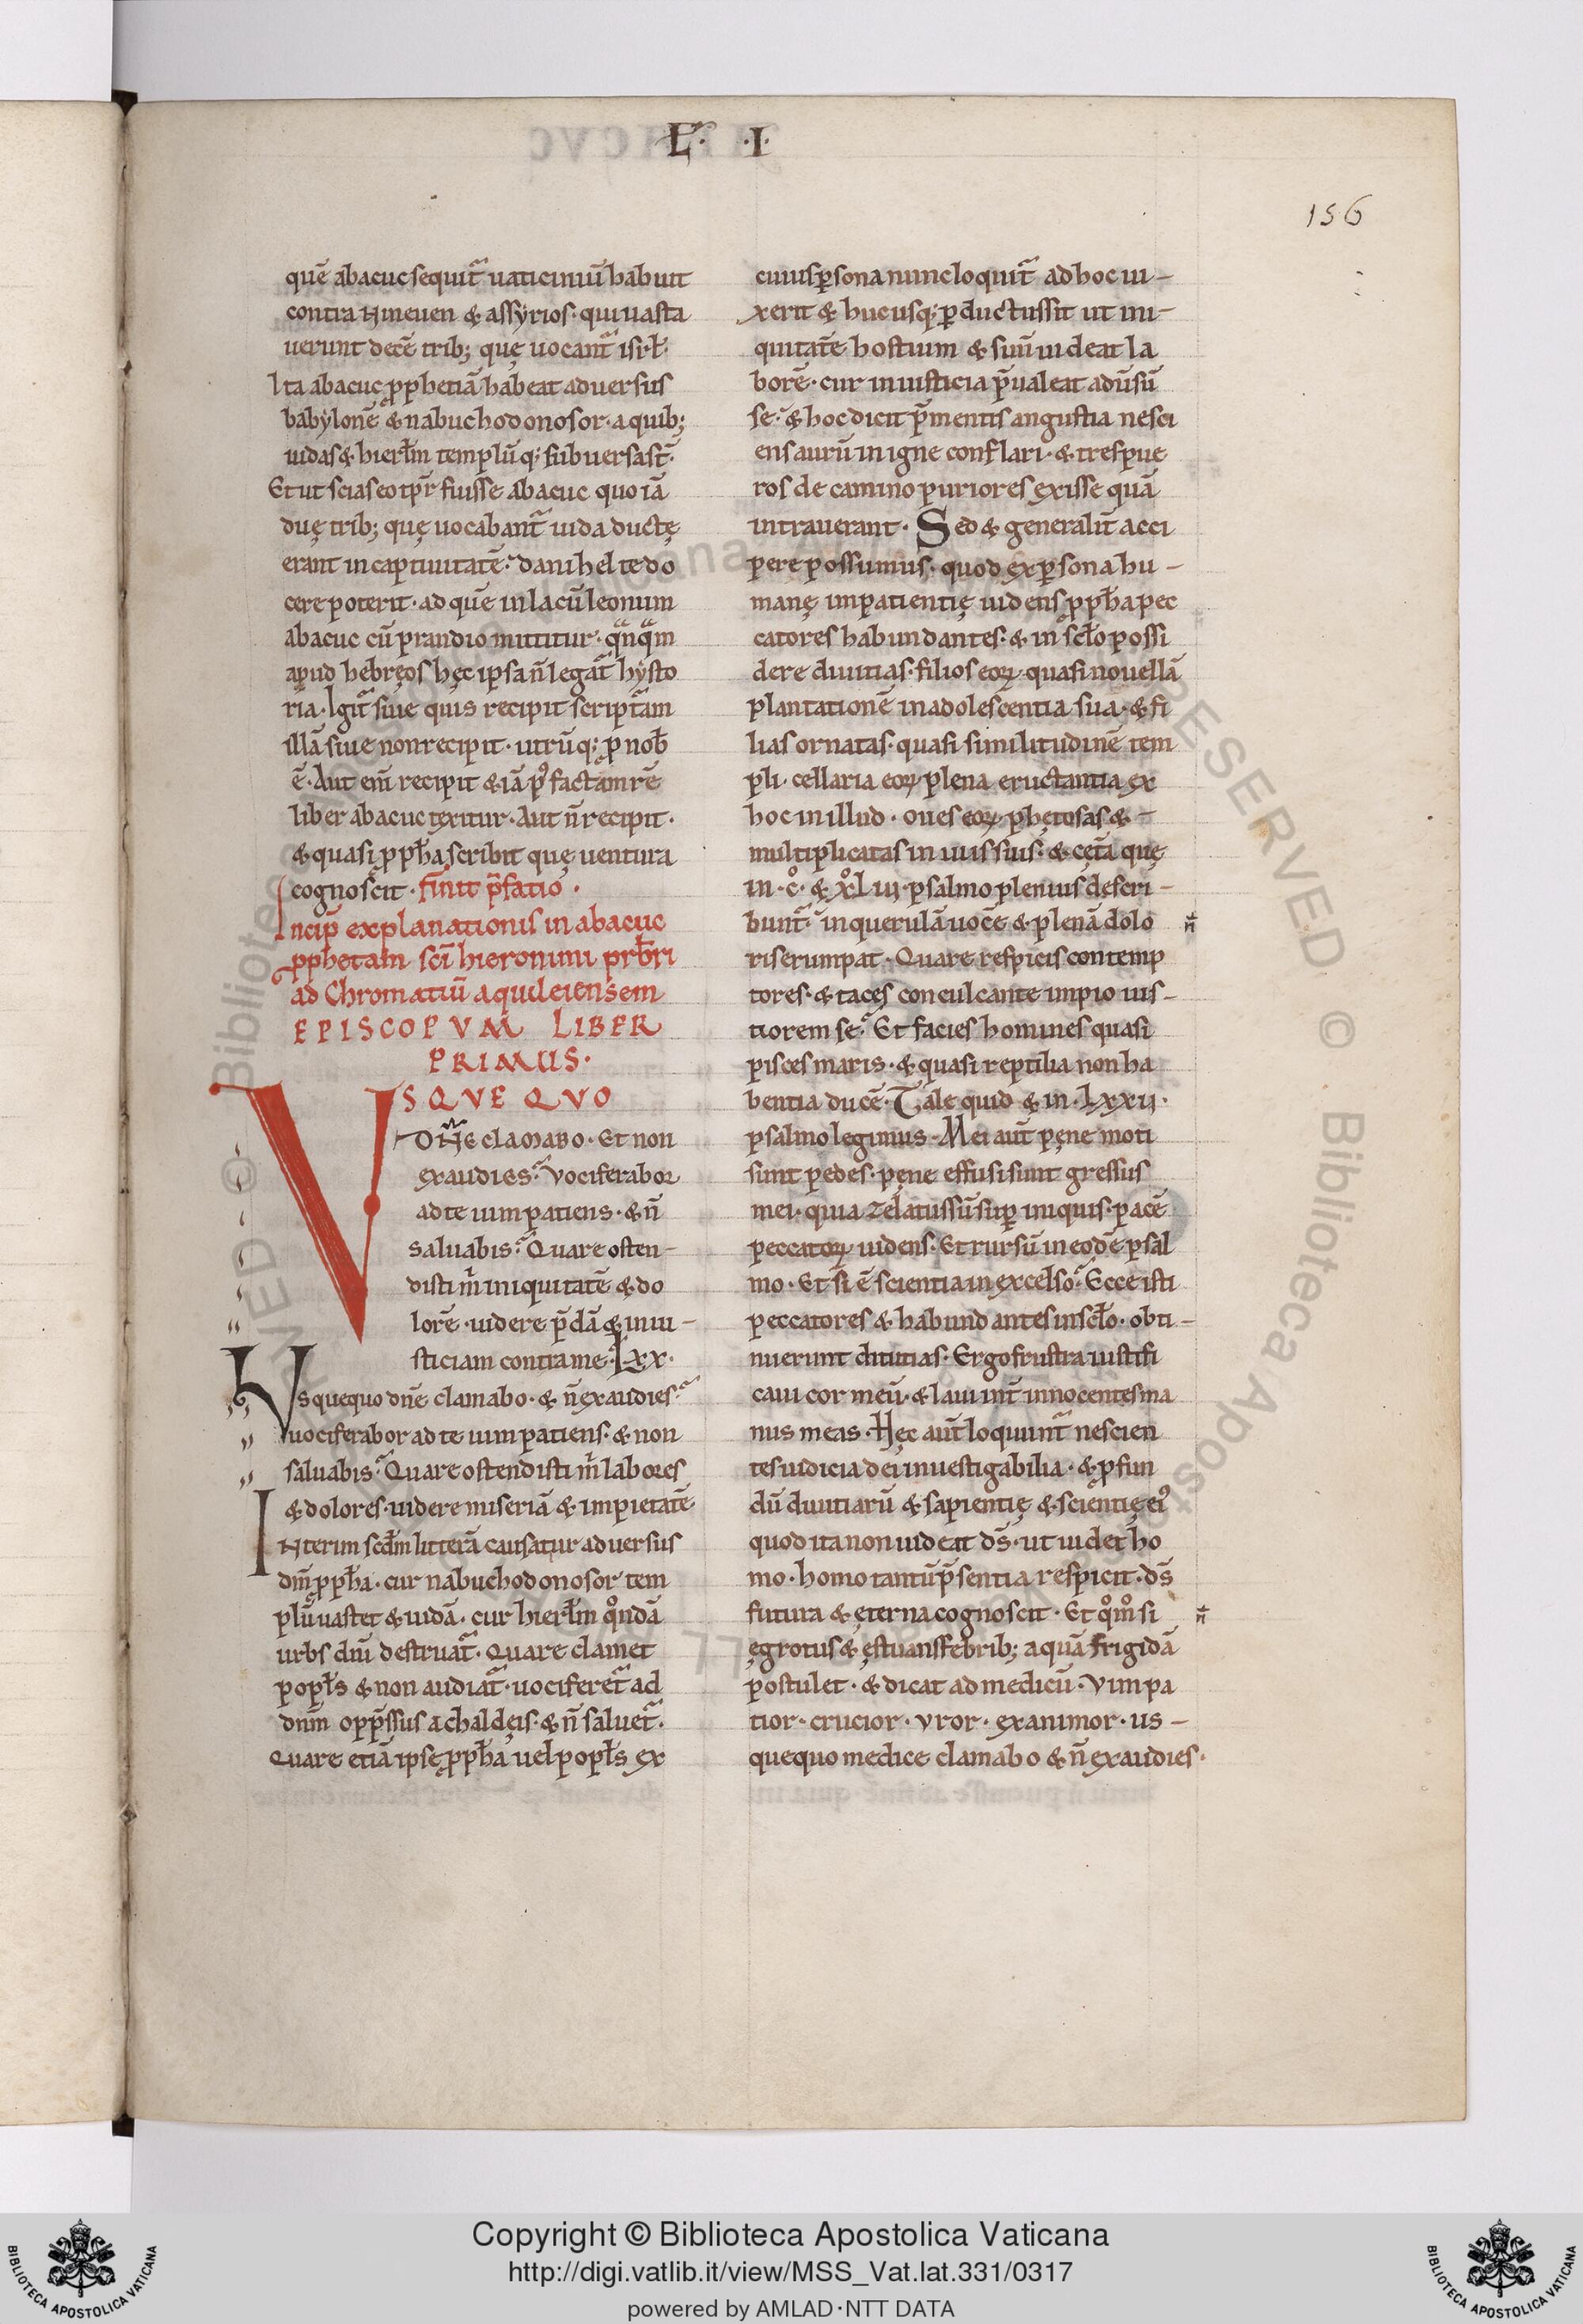 L. ·I·
156
quē abacuc sequit̄ uaticiniū habuit
contra Nineuen & assyrios· qui uasta
uerunt decē trib; quę uocant̄ isrł·
Ita abacuc ꝓphetiā habeat aduersus
babylonē & nabuchodonosor· a quib;
iudas & hierłm templūq; subuersa st̄·
Et ut scias eo tp̄r fuisse abacuc quo iā
duę trib; quę uocabant̄ iuda ductę
erant in captiuitatē· danihel te do
cere poterit· ad quē in lacū leonum
abacuc cū prandio mittitur· qͣnqͣm
apud hebręos hęc ipsa n̄ legat̄ hysto
ria· Igit̄ siue quis recipit scripturam
illā siue non recipit· utrūq; ꝓ nob̄
ē· Aut eni̅ recipit & iā pꝰ factam rē
liber abacuc texitur· Aut n̄ recipit·
& quasi ꝓph̄a scribit quę uentura
cognoscit· finit p̄fatio·
Incip̄ explanationis in abacuc
ꝓphetam sc̄i hieronimi prb̄ri
ad Chromatiū aquileiensem
EPISCOPVM LIBER
PRIMUS·
VSQVE QVO
DN̄E clamabo· Et non
exaudies· Vociferabor
ad te uim patiens· & n̄
saluabis· Quare osten-
disti m̄ iniquitatē & do
lorē· uidere p̄dā & iniu-
sticiam contra me· Lxx·
Vsquequo dn̄e clamabo· & n̄ exaudies·
uociferabor ad te uim patiens· & non
saluabis· Quare ostendisti m̄ labores
& dolores· uidere miseriā & impietatē·
INterim scd̄m litterā causatur aduersus
dm̄ ꝓph̄a· cur nabuchodonosor tem
plū uastet & iudā· cur hierłm qͦndā
urbs dn̄i destruat̄· Quare clamet
popłs & non audiat̄· uociferet̄ ad
dnm̄ opp̄ssus a chaldęis· & n̄ saluet̄·
Quare etiā ipse ꝓph̄a uel popłs ex
cuius ꝑsona nunc loquit̄ ad hoc ui-
xerit & hucusq; ꝑductus sit ut ini-
quitatē hostium & suū uideat la
borē· cur iniusticia p̄ualeat adūsū
se· & hoc dicit p̄ mentis angustia nesci
ens aurū in igne conflari· & tres pue
ros de camino puriores exisse quā
intrauerant· Sed & generalit̄ acci
pere possumus· quod ex ꝑsona hu-
manę impatientię uidens ꝓph̄a pec
catores habundantes· & in scło possi
dere diuitias· filios eoꝝ quasi nouellā
plantationē in adolescentia sua· & fi
lias ornatas· quasi similitudinē tem
pli· cellaria eoꝝ plena eructantia ex
hoc in illud· oues eoꝝ phętosas & -
multiplicatas in uiis suis· & cęta quę
in·cͦ· & xͦL iij· psalmo plenius descri-
bunt̄· in querulā uocē & plenā dolo
ris erumpat· Quare respicis contemp
tores· & taces conculcante impio ius-
tiorem se· Et facies homines quasi
pisces maris· & quasi reptilia non ha
bentia ducē· Tale quid & in·Lxxij·
psalmo legimus· Mei aut̄ pęne moti
sunt pedes· pęne effusi sunt gressus
mei· quia zelatus sū suꝑ iniquis· pacē
peccatoꝝ uidens· Et rursū in eodē psal
mo· Et si ē scientia in excelso· Ecce isti
peccatores & habundantes in scło· obti-
nuerunt diuitias· Ergo frustra iustifi
caui cor meū· & laui int̄ innocentes ma
nus meas· Hęc aut̄ loquunt̄ nescien
tes iudicia dei inuestigabilia· & ꝓfun
dū diuitiarū & sapientię & scientię eiꝰ
quod ita non uideat ds̄· ut uidet ho
mo· homo tantū p̄sentia respicit· ds̄
futura & ęterna cognoscit· Et qͦmͦ si
ęgrotus & ęstuans febrib; aquā frigidā
postulet· & dicat ad medicū· Vim pa
tior· crucior· vror· exanimor· us-
quequo medice clamabo & n̄ exaudies·
Copyright © Biblioteca Apostolica Vaticana
http://digi.vatlib.it/view/MSS_Vat.lat.331/0317
powered by AMLAD·NTT DATA
BIBLIOTECA APOSTOLICA VATICANA
BIBLIOTECA APOSTOLICA VATICANA